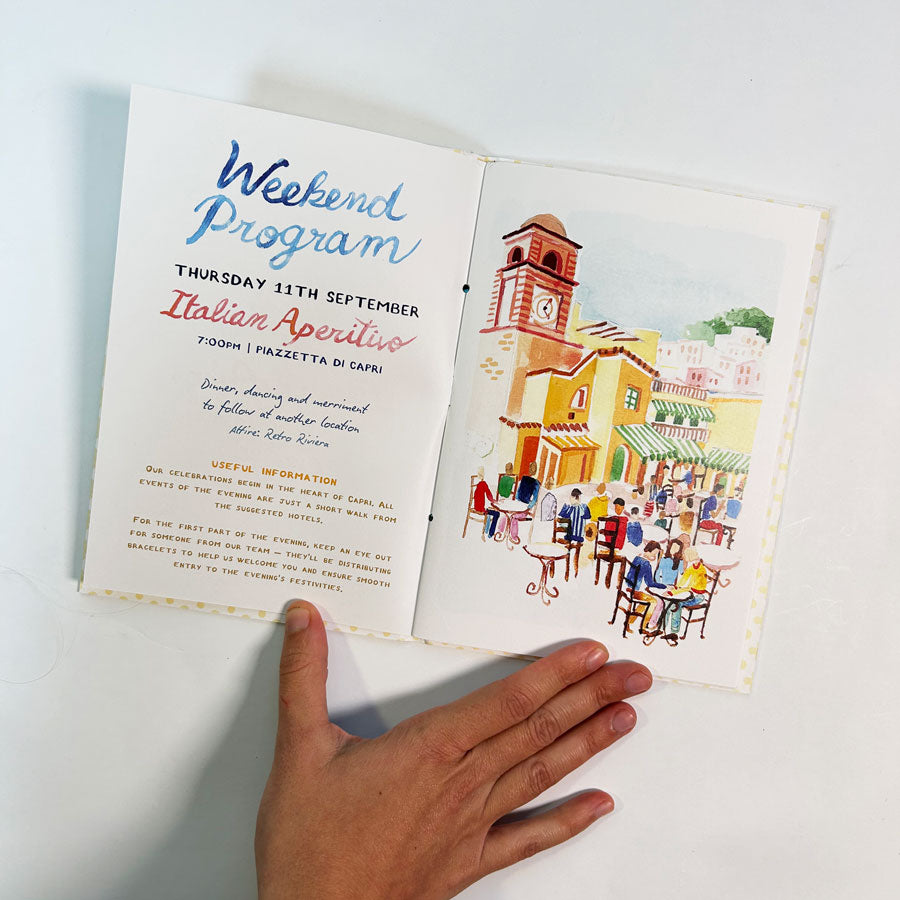 Weekend
Program
THURSDAY 11TH SEPTEMBER
Italian Aperitivo
7:00PM | PIAZZETTA DI CAPRI
Dinner, dancing and merriment
to follow at another location
Attire: Retro Riviera
USEFUL INFORMATION
OUR CELEBRATIONS BEGIN IN THE HEART OF CAPRI. ALL
EVENTS OF THE EVENING ARE JUST A SHORT WALK FROM
THE SUGGESTED HOTELS.
FOR THE FIRST PART OF THE EVENING, KEEP AN EYE OUT
FOR SOMEONE FROM OUR TEAM – THEY'LL BE DISTRIBUTING
BRACELETS TO HELP US WELCOME YOU AND ENSURE SMOOTH
ENTRY TO THE EVENING'S FESTIVITIES.